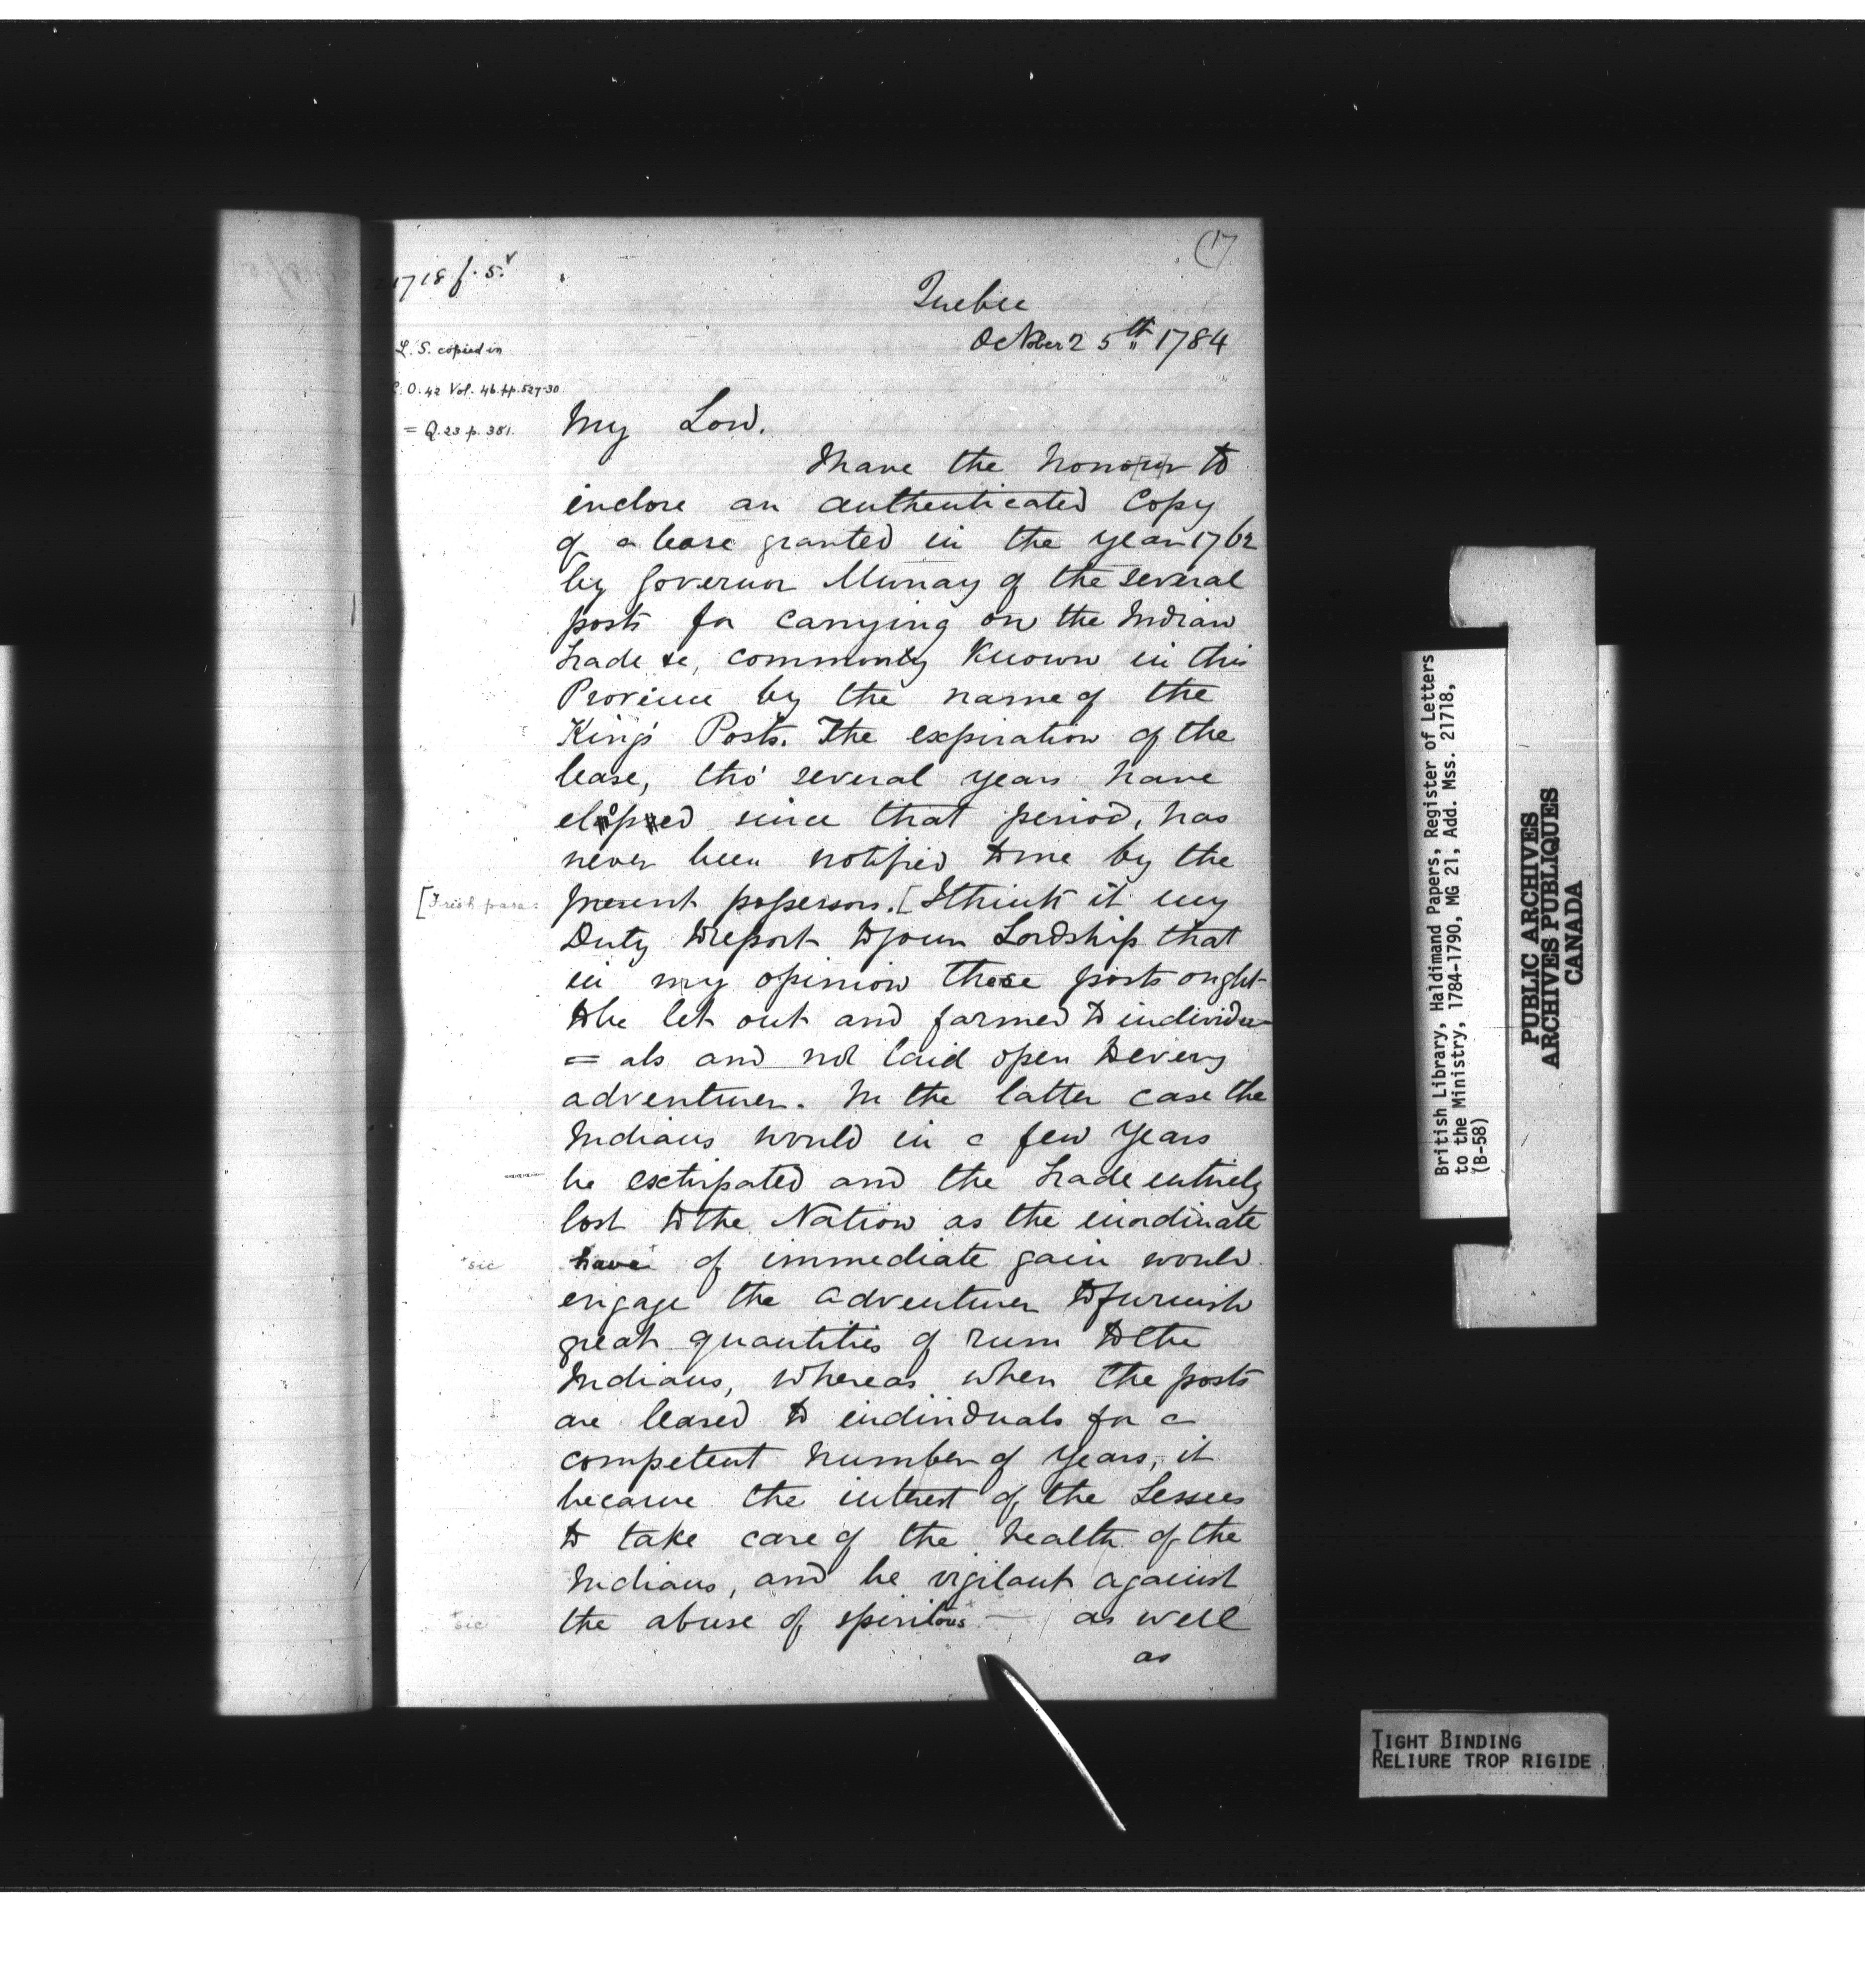 (17
21718 f. 5.v
Quebec
October 25th 1784
L. S. copied in
C. O. 42 Vol. 46. pp. 527-30
= Q. 23 p. 381.
My Lord.
I have the honour to
inclose an authenticated Copy
of a lease granted in the year 1762
by Governor Murray of the several
posts for carrying on the Indian
trade &c, commonly known in this
Province by the name of the
King's Posts. The expiration of the
lease, tho' several years have
elopsed since that period, has
never been notified to me by the
[Fresh para:
present possessors. [I think it my
Duty to report to your Lordship that
in my opinion these posts ought
to be let out and farmed to individu-
= als and not laid open to every
adventurer. In the latter case the
Indians would in a few years
be extirpated and the trade entirely
lost to the Nation as the inordinate
+sic
have+ of immediate gain would
engage the adventurer to furnish
great quantities of rum to the
Indians, whereas when the posts
are leased to individuals for a
competent number of years, it
became the interest of the Lessees
to take care of the health of the
Indians, and be vigilant against
+sic
the abuse of spiritous+ — as well
as
British Library, Haldimand Papers, Register of Letters
to the Ministry, 1784-1790, MG 21, Add. Mss. 21718,
(B-58)
PUBLIC ARCHIVES
ARCHIVES PUBLIQUES
CANADA
TIGHT BINDING
RELIURE TROP RIGIDE